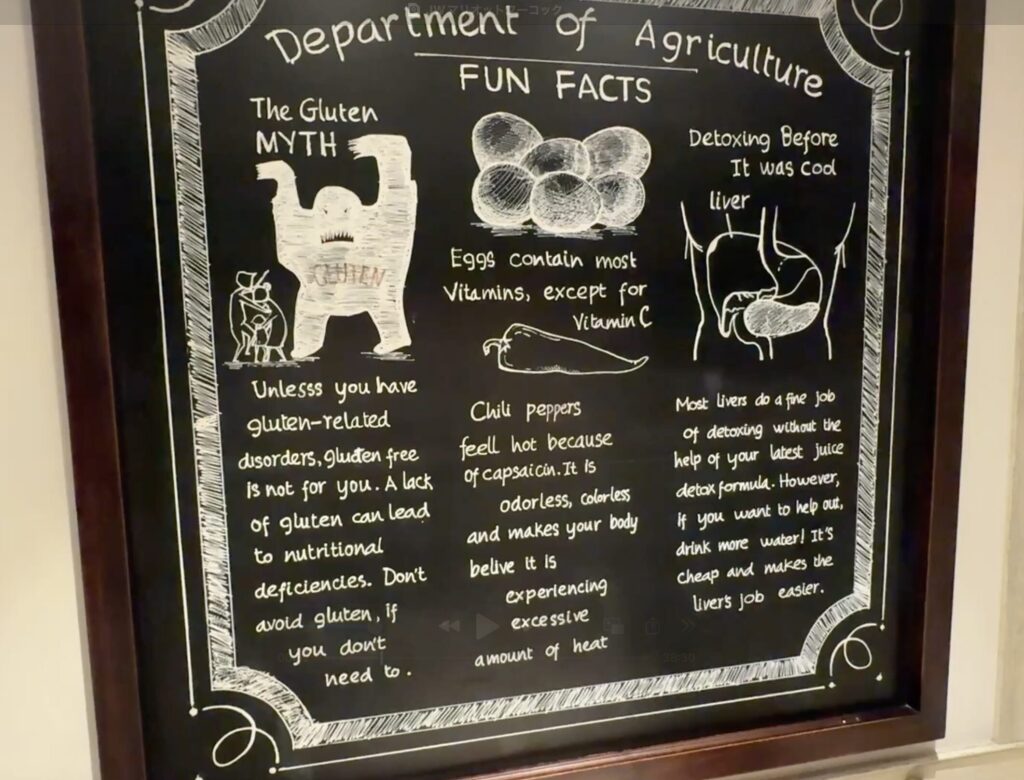 Department of Agriculture
FUN FACTS
The Gluten
MYTH
GLUTEN
Unlesss you have
gluten-related
disorders, gluten free
is not for you. A lack
of gluten can lead
to nutritional
deficiencies. Don't
avoid gluten, if
you don't
need to.
Eggs contain most
Vitamins, except for
Vitamin C
Chili peppers
feell hot because
of capsaicin. It is
odorless, colorless
and makes your body
belive it is
experiencing
excessive
amount of heat
Detoxing Before
It was cool
liver
Most livers do a fine job
of detoxing without the
help of your latest juice
detox formula. However,
if you want to help out,
drink more water! It's
cheap and makes the
liver's job easier.